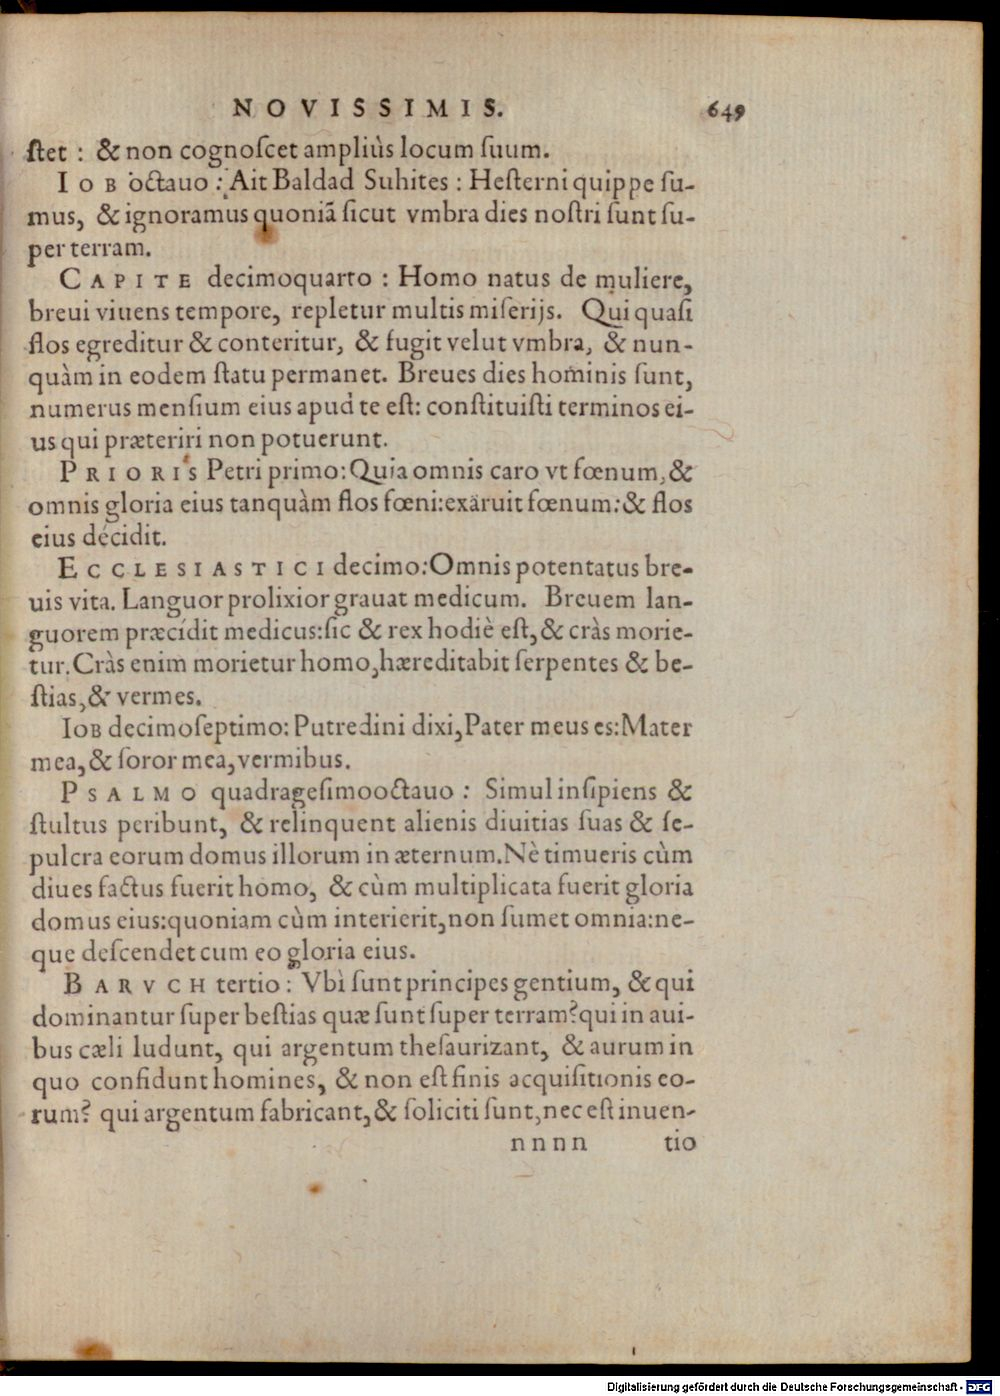 NOVISSIMIS. 649
ſtet : & non cognoſcet ampliùs locum ſuum.
IOB octauo : Ait Baldad Suhites : Heſterni quippe ſu-
mus, & ignoramus quoniã ſicut vmbra dies noſtri ſunt ſu-
per terram.
CAPITE decimoquarto : Homo natus de muliere,
breui viuens tempore, repletur multis miſerijs. Qui quaſi
flos egreditur & conteritur, & fugit velut vmbra, & nun-
quàm in eodem ſtatu permanet. Breues dies hominis ſunt,
numerus menſium eius apud te eſt: conſtituiſti terminos ei-
us qui præteriri non potuerunt.
PRIORIS Petri primo: Quia omnis caro vt fœnum, &
omnis gloria eius tanquàm flos fœni: exaruit fœnum: & flos
eius décidit.
ECCLESIASTICI decimo: Omnis potentatus bre-
uis vita. Languor prolixior grauat medicum. Breuem lan-
guorem præcídit medicus: ſic & rex hodiè eſt, & cràs morie-
tur. Cràs enim morietur homo, hæreditabit ſerpentes & be-
ſtias, & vermes.
IOB decimoſeptimo: Putredini dixi, Pater meus es: Mater
mea, & ſoror mea, vermibus.
PSALMO quadrageſimooctauo : Simul inſipiens &
ſtultus peribunt, & relinquent alienis diuitias ſuas & ſe-
pulcra eorum domus illorum in æternum. Nè timueris cùm
diues factus fuerit homo, & cùm multiplicata fuerit gloria
domus eius: quoniam cùm interierit, non ſumet omnia: ne-
que deſcendet cum eo gloria eius.
BARVCH tertio : Vbì ſunt principes gentium, & qui
dominantur ſuper beſtias quæ ſunt ſuper terram? qui in aui-
bus cæli ludunt, qui argentum theſaurizant, & aurum in
quo confidunt homines, & non eſt finis acquiſitionis eo-
rum? qui argentum fabricant, & ſoliciti ſunt, nec eſt inuen-
nnnn tio
Digitalisierung gefördert durch die Deutsche Forschungsgemeinschaft - DFG